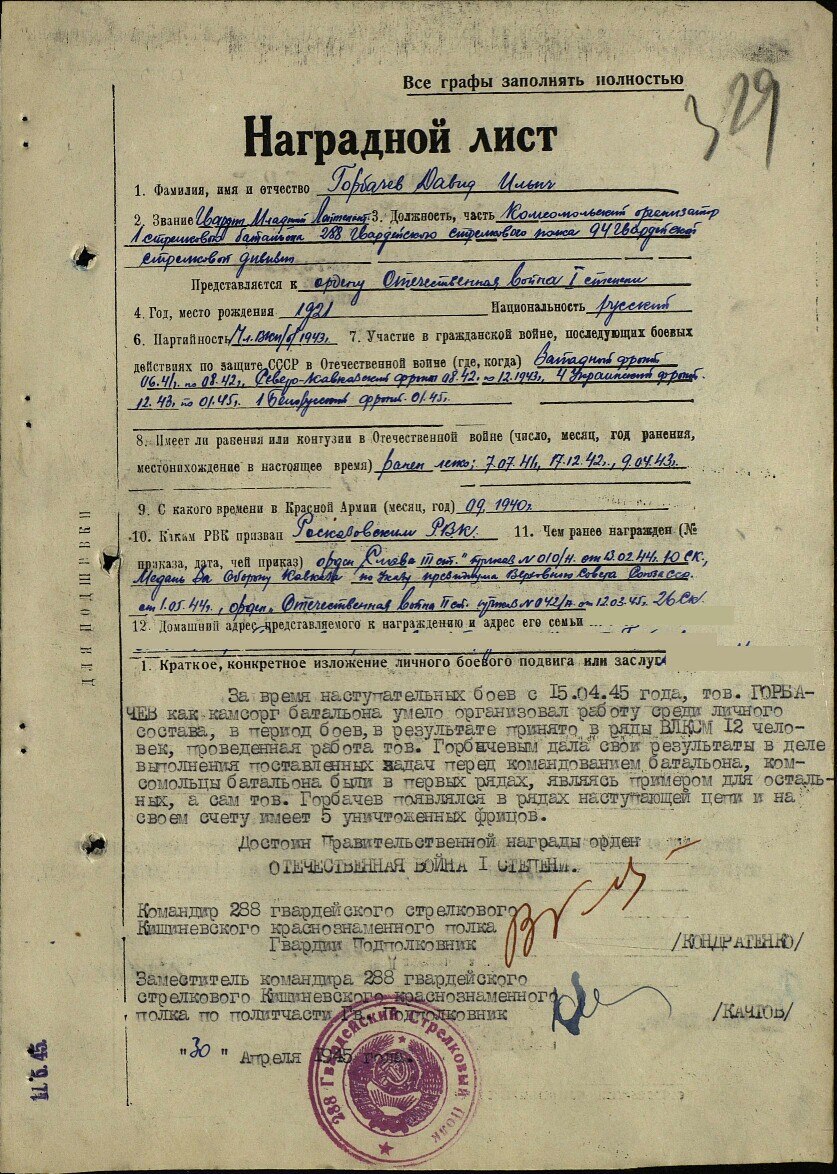 Все графы заполнять полностью
329
Наградной лист
1. Фамилия, имя и отчество Горбачев Давид Ильич
2. Звание Гвардии Младший Лейтенант 3. Должность, часть Комсомольский организатор
1 стрелкового батальона 288 Гвардейского стрелкового полка 94 Гвардейской
стрелковой дивизии
Представляется к ордену Отечественная война I степени
4. Год, место рождения 1921 Национальность русский
6. Партийность Чл. ВКП/б/ 1943г. 7. Участие в гражданской войне, последующих боевых
действиях по защите СССР в Отечественной войне (где, когда) Западный фронт
06.41г. по 08.42г., Северо-Кавказский фронт 08.42г. по 12.1943г., 4 Украинский фронт
12.43г. по 01.45г. 1 Белорусский фронт 01.45г.
8. Имеет ли ранения или контузии в Отечественной войне (число, месяц, год ранения,
местонихождение в настоящее время) ранен легко: 7.07.41г., 17.12.42г., 9.04.43г.
9. С какого времени в Красной Армии (месяц, год) 09.1940г.
10. Каким РВК призван РВК. 11. Чем ранее награжден (№
приказа, дата, чей приказ) орден "Слава III ст." приказ № 010/н. от 13.02.44г. 10 СК,
Медаль За Оборону Кавказа, по Указу президиума Верховного Совета Союза ССР
от 1.05.44г., орден "Отечественная война II ст. приказ № 042/н от 12.03.45г. 26 СК.
12. Домашний адрес представляемого к награждению и адрес его семьи
1. Краткое, конкретное изложение личного боевого подвига или заслуг
За время наступательных боев с 15.04.45 года, тов. ГОРБА-
ЧЕВ как камсорг батальона умело организовал работу среди личного
состава, в период боев, в результате принято в ряды ВЛКСМ 12 чело-
век, проведенная работа тов. Горбичевым дала свои результаты в деле
выполнения поставленных задач перед командованием батальона, ком-
сомольцы батальона были в первых рядах, являясь примером для осталь-
ных, а сам тов. Горбачев появлялся в рядах наступающей цепи и на
своем счету имеет 5 уничтоженных фрицов.
Достоин Правительственной награды орден
ОТЕЧЕСТВЕННАЯ ВОЙНА I СТЕПЕНИ.
Командир 288 гвардейского стрелкового
Кишиневского краснознаменного полка
Гвардии Подполковник /КОНДРАТЕНКО/
Заместитель командира 288 гвардейского
стрелкового Кишиневского краснознаменного
полка по политчасти Гв. Подполковник /КАЧТОВ/
"30" Апреля 1945 года.
288 Гвардейский Стрелковый Полк
ДЛЯ ПОДШИВКИ
11.5.45.